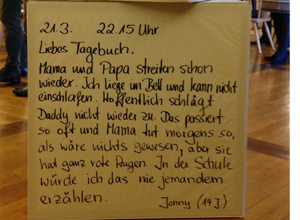 21.3. 22.15 Uhr
Liebes Tagebuch.
Mama und Papa streiten schon
wieder. Ich liege im Bett und kann nicht
einschlafen. Hoffentlich schlägt
Daddy nicht wieder zu. Das passiert
so oft und Mama tut morgens so,
als wäre nichts gewesen, aber sie
hat ganz rote Augen. In der Schule
würde ich das nie jemandem
erzählen. Jenny (14 J.)